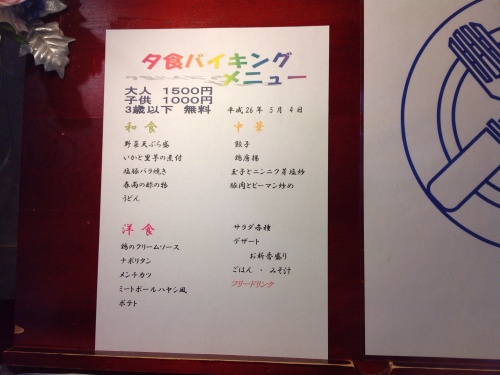 夕食バイキング
メニュー
大人 1500円
子供 1000円
3歳以下 無料
平成26年 5月 4日
和食
野菜天ぷら盛
いかと里芋の煮付
塩豚バラ焼き
春雨の酢の物
うどん
中華
餃子
鶏唐揚
玉子とニンニク芽塩炒
豚肉とピーマン炒め
洋食
鶏のクリームソース
ナポリタン
メンチカツ
ミートボールハヤシ風
ポテト
サラダ各種
デザート
お新香盛り
ごはん ・ みそ汁
フリードリンク